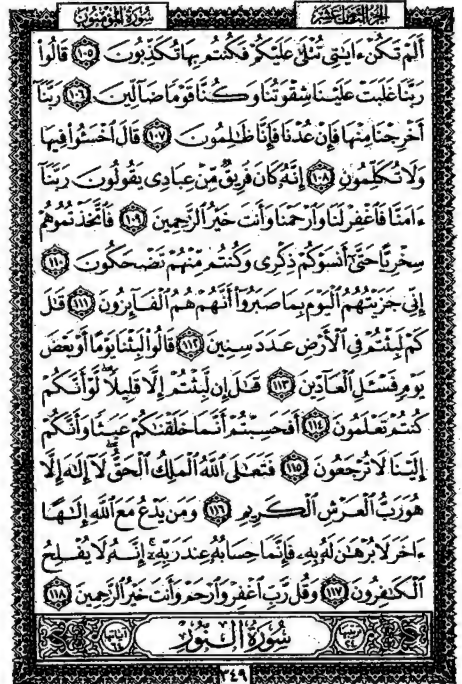 الجزء الثامن عشر سورة المؤمنون
ألم تكن ءايتى تتلى عليكم فكنتم بها تكذبون ١٠٥ قالوا
ربنا غلبت علينا شقوتنا وكنا قوما ضآلين ١٠٦ ربنآ
أخرجنا منها فإن عدنا فإنا ظلمون ١٠٧ قال اخسـوا فيها
ولا تكلمون ١٠٨ إنه كان فريق من عبادى يقولون ربنآ
ءامنا فاغفر لنا وارحمنا وأنت خير الرحمين ١٠٩ فاتخذتموهم
سخريا حتى أنسوكم ذكرى وكنتم منهم تضحكون ١١٠
إنى جزيتهم اليوم بما صبروا أنهم هم الفآئزون ١١١ قل
كم لبثتم فى الأرض عدد سنين ١١٢ قالوا لبثنا يوما أو بعض
يوم فسـل العآدين ١١٣ قل إن لبثتم إلا قليلا لو أنكم
كنتم تعلمون ١١٤ أفحسبتم أنما خلقنكم عبثا وأنكم
إلينا لا ترجعون ١١٥ فتعلى الله الملك الحق لآ إله إلا
هو رب العرش الكريم ١١٦ ومن يدع مع الله إلها
ءاخر لا برهن له به فإنما حسابه عند ربه إنه لا يفلح
الكفرون ١١٧ وقل رب اغفر وارحم وأنت خير الرحمين ١١٨
سورة النور
٣٤٩